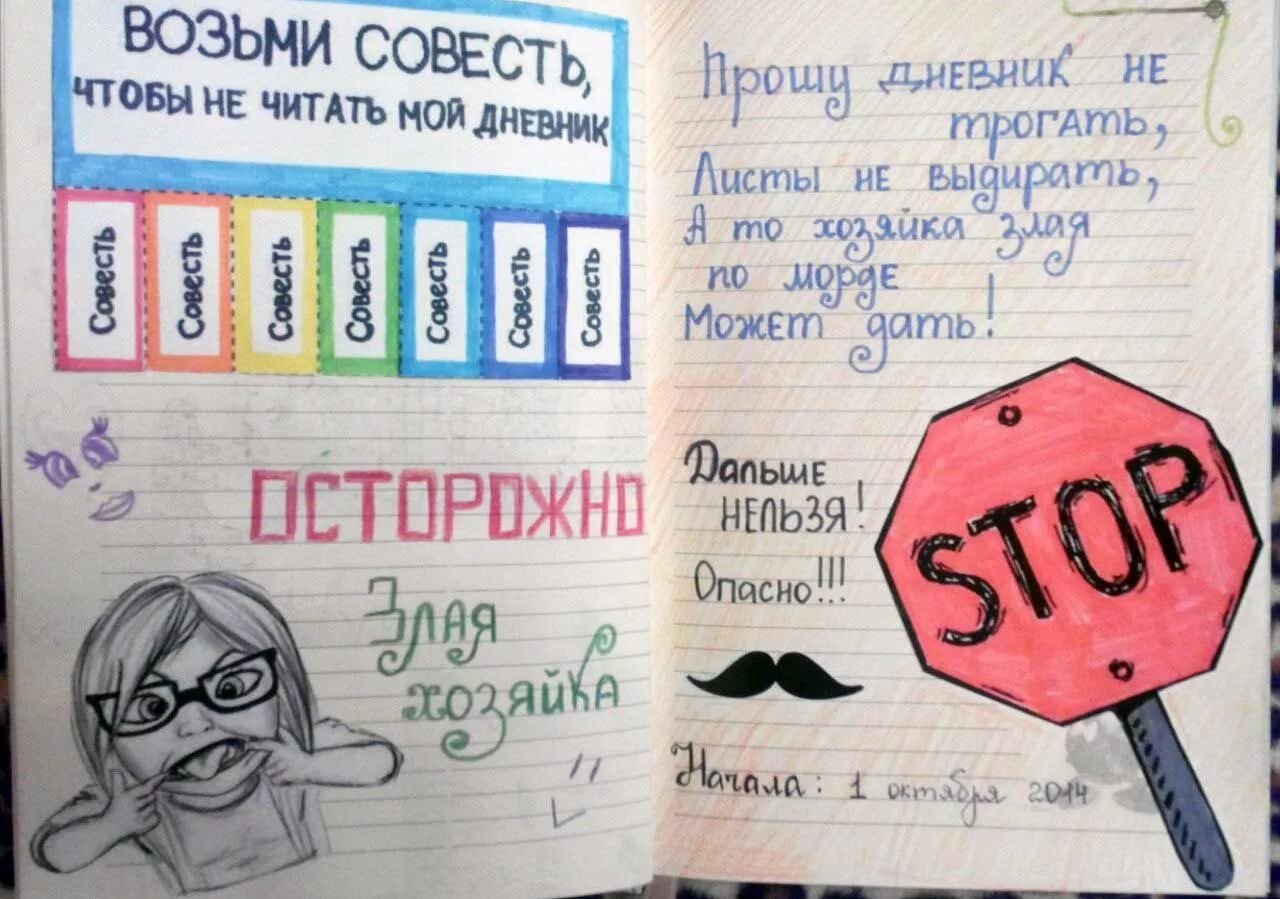 ВОЗЬМИ СОВЕСТЬ,
ЧТОБЫ НЕ ЧИТАТЬ МОЙ ДНЕВНИК
Совесть
Совесть
Совесть
Совесть
Совесть
Совесть
Совесть
ОСТОРОЖНО
Злая
хозяйка
Прошу дневник не
трогать,
Листы не выдирать,
А то хозяйка злая
по морде
Может дать!
Дальше
нельзя!
Опасно!!!
STOP
Начала: 1 октября 2014